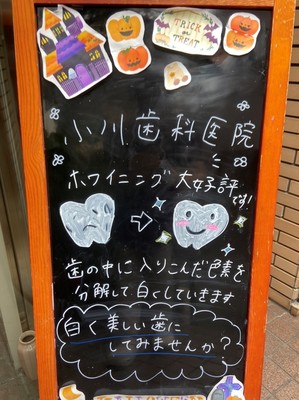 TRICK
or
TREAT
小川歯科医院
ホワイニング大好評
です!
歯の中に入りこんだ色素を
分解して白くしていきます
白く美しい歯に
してみませんか?